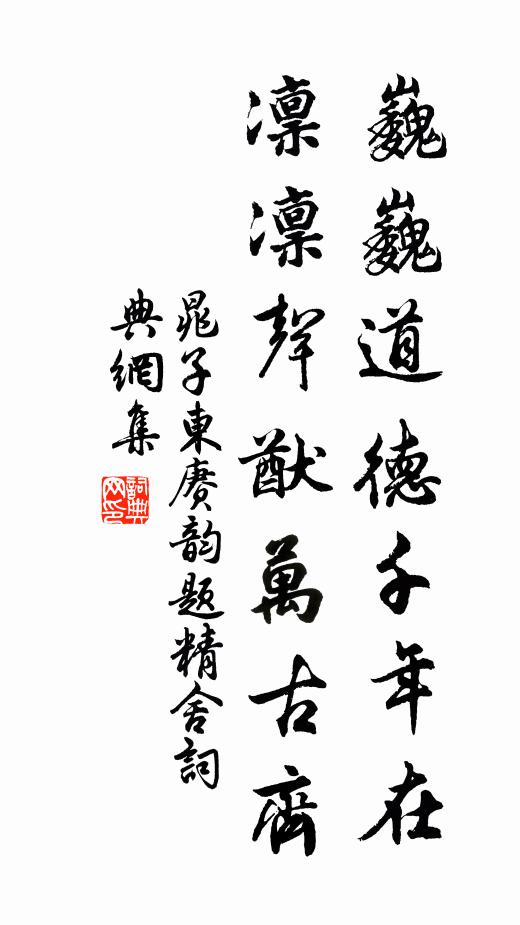 巍巍道德千年在
凜凜聲猷萬古齊
晁子東賡韵題精舍詞
典網集
詞典網印